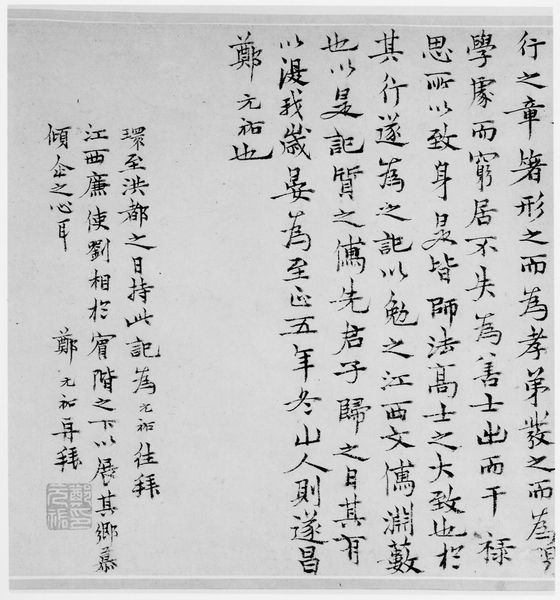 行之章著形之而為孝弟發之而為
學處而窮居不失為善士出而干祿
思所以致身是皆師法高士之大致也於
其行遂為之記以勉之江西文儒淵藪
也以是記質之儒先君子歸之日其有
以復我歲晏為至正五年冬山人則遂昌
鄭元祐也
環至洪都之日持此記為元祐往拜
江西廉使劉相於賓階之下以展其鄉慕
傾企之心耳
鄭元祐再拜